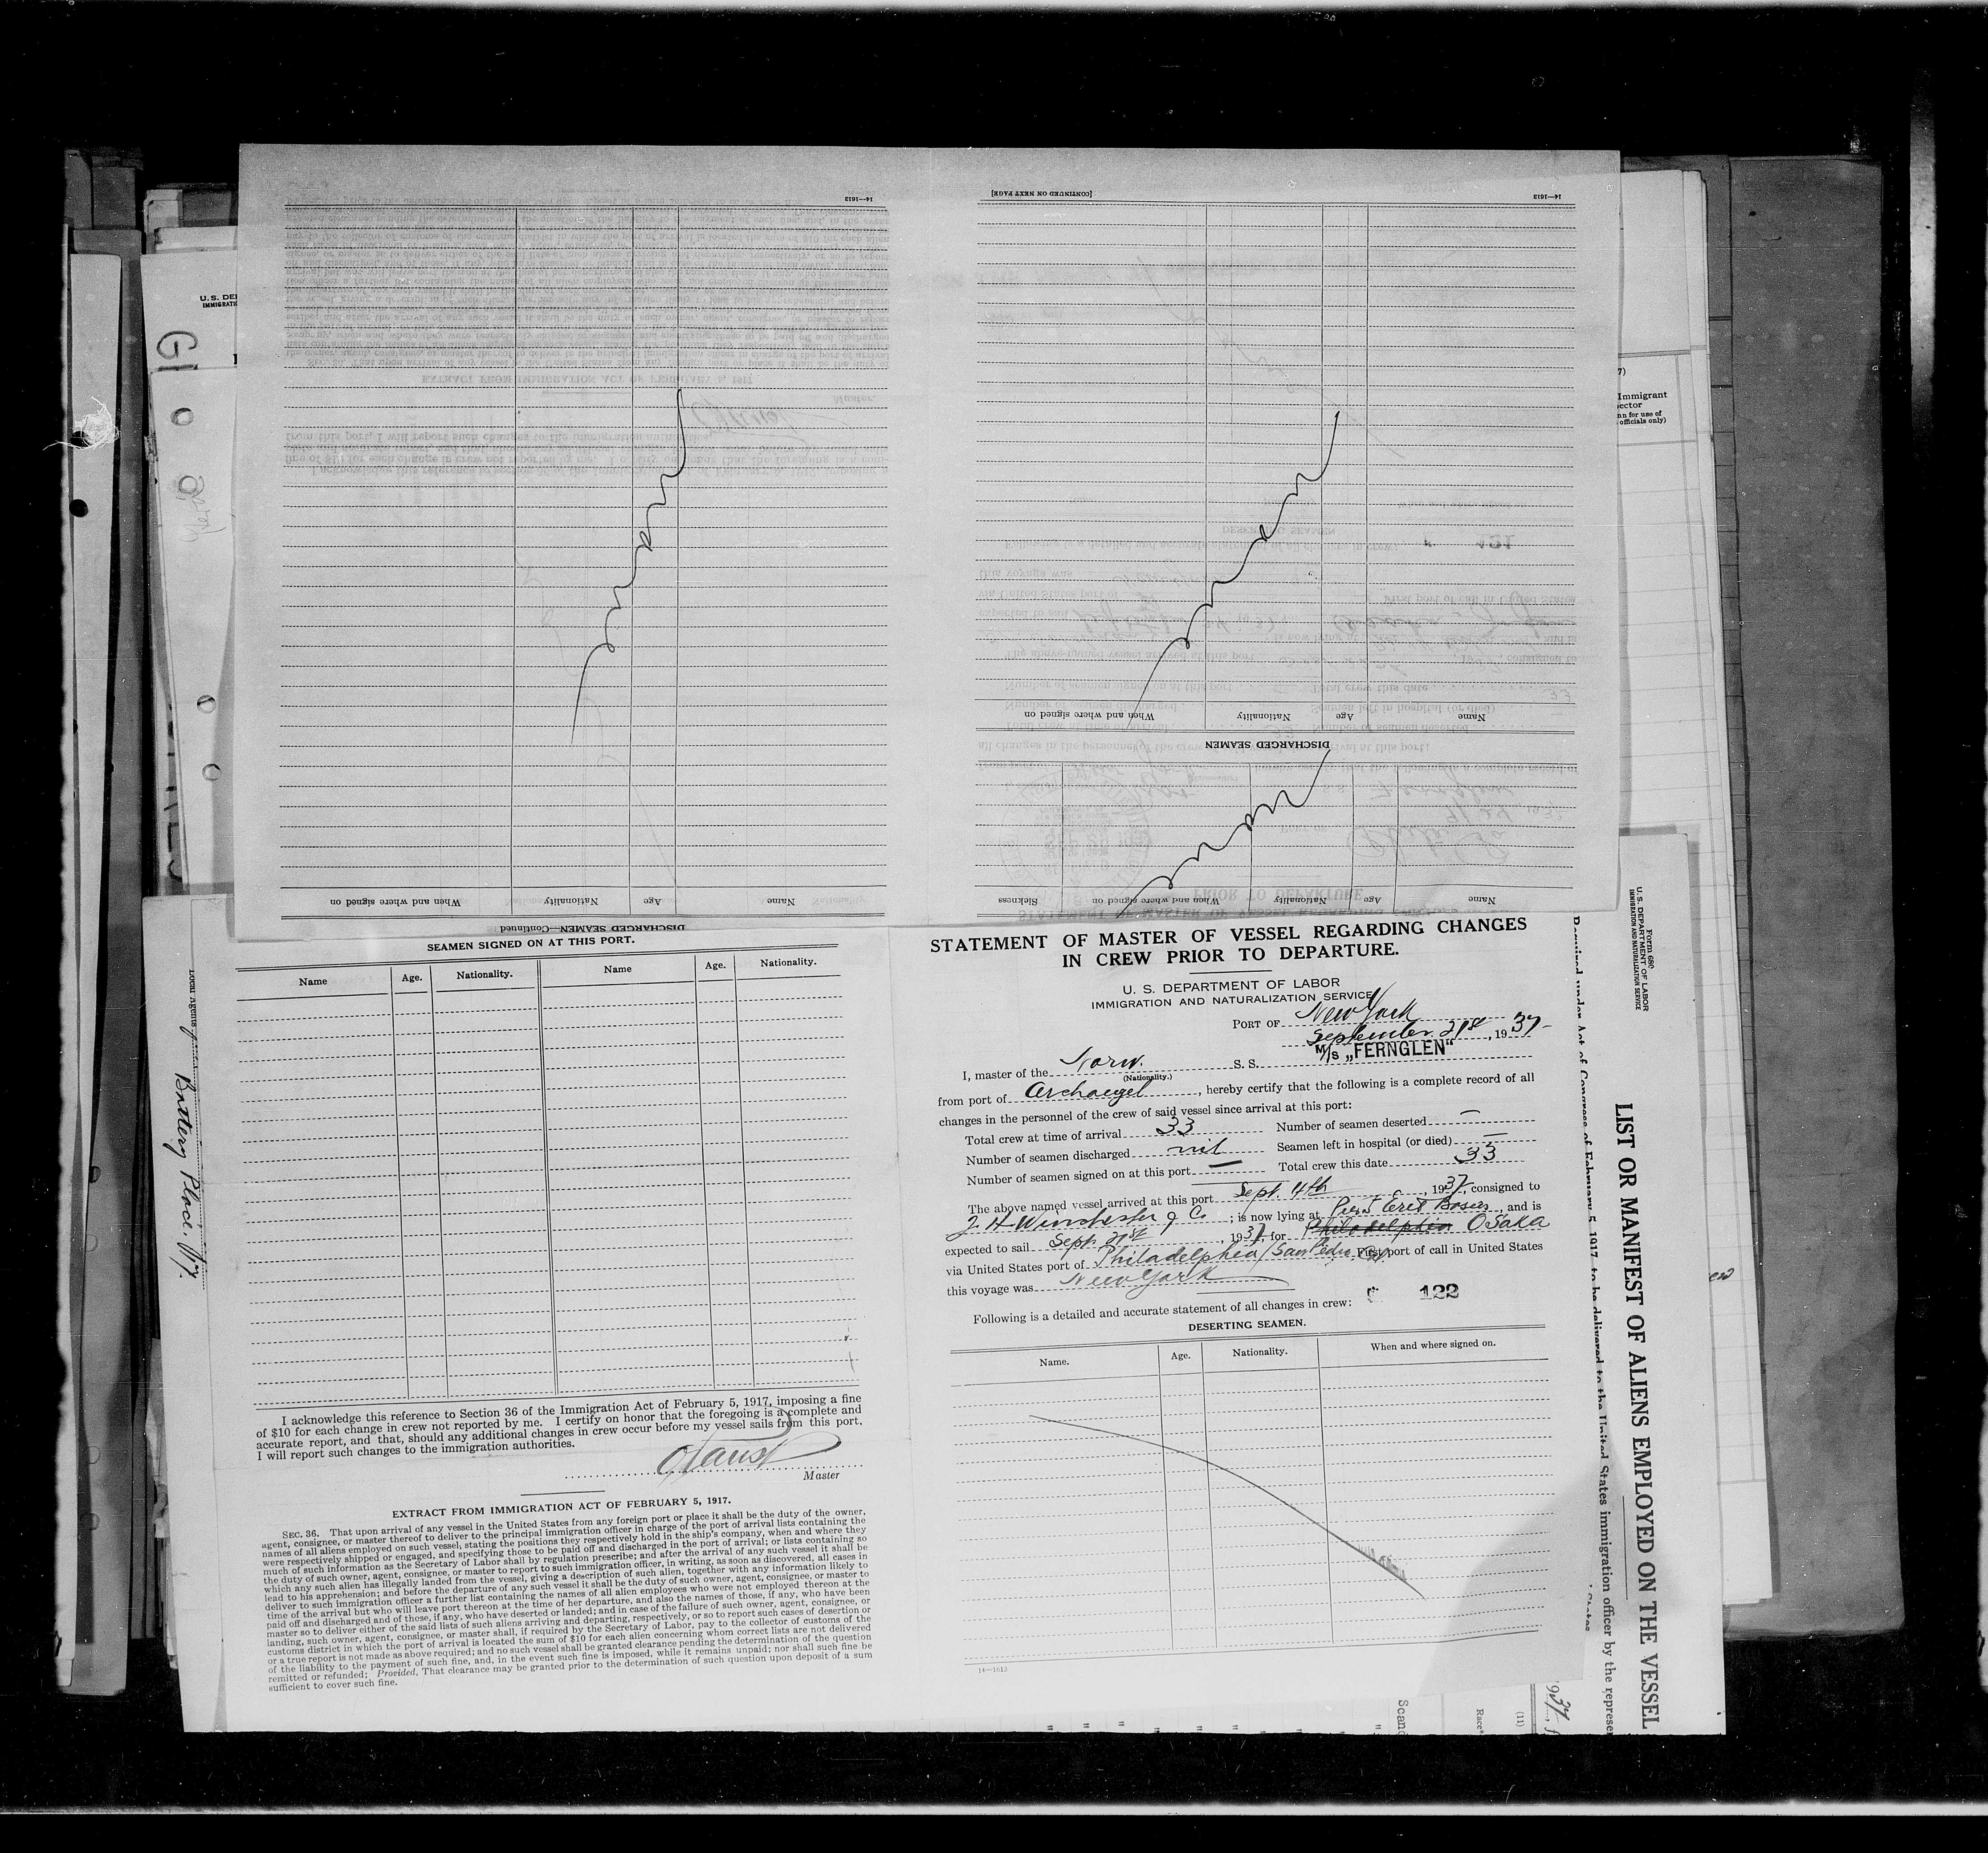 [CONTINUED ON NEXT PAGE]
14—1613
14—1613
When and where signed on
Nationality
Age
Name
DISCHARGED SEAMEN
Sickness
When and where signed on
Nationality
Age
Name
When and where signed on
Nationality
Age
Name
DISCHARGED SEAMEN—Continued
U.S. DE
IMMIGRATI
Immigrant
officials only)
SEAMEN SIGNED ON AT THIS PORT.
Name
Age.
Nationality.
Name
Age.
Nationality.
I acknowledge this reference to Section 36 of the Immigration Act of February 5, 1917, imposing a fine
of $10 for each change in crew not reported by me. I certify on honor that the foregoing is a complete and
accurate report, and that, should any additional changes in crew occur before my vessel sails from this port,
I will report such changes to the immigration authorities.
Master
EXTRACT FROM IMMIGRATION ACT OF FEBRUARY 5, 1917.
SEC. 36. That upon arrival of any vessel in the United States from any foreign port or place it shall be the duty of the owner,
agent, consignee, or master thereof to deliver to the principal immigration officer in charge of the port of arrival lists containing the
names of all aliens employed on such vessel, stating the positions they respectively hold in the ship's company, when and where they
were respectively shipped or engaged, and specifying those to be paid off and discharged in the port of arrival; or lists containing so
much of such information as the Secretary of Labor shall by regulation prescribe; and after the arrival of any such vessel it shall be
the duty of such owner, agent, consignee, or master to report to such immigration officer, in writing, as soon as discovered, all cases in
which any such alien has illegally landed from the vessel, giving a description of such alien, together with any information likely to
lead to his apprehension; and before the departure of any such vessel it shall be the duty of such owner, agent, consignee, or master to
deliver to such immigration officer a further list containing the names of all alien employees who were not employed thereon at the
time of the arrival but who will leave port thereon at the time of her departure, and also the names of those, if any, who have been
paid off and discharged and of these, if any, who have deserted or landed; and in case of the failure of such owner, agent, consignee, or
master so to deliver either of the said lists of such aliens arriving and departing, respectively, or so to report such cases of desertion or
landing, such owner, agent, consignee, or master shall, if required by the Secretary of Labor, pay to the collector of customs of the
customs district in which the port of arrival is located the sum of $10 for each alien concerning whom correct lists are not delivered
or a true report is not made as above required; and no such vessel shall be granted clearance pending the determination of the question
of the liability to the payment of such fine, and, in the event such fine is imposed, while it remains unpaid; nor shall such fine be
remitted or refunded: Provided, That clearance may be granted prior to the determination of such question upon deposit of a sum
sufficient to cover such fine.
STATEMENT OF MASTER OF VESSEL REGARDING CHANGES
IN CREW PRIOR TO DEPARTURE.
U. S. DEPARTMENT OF LABOR
IMMIGRATION AND NATURALIZATION SERVICE
PORT OF New York
September 21st, 1937
I, master of the Norw. S. S. M/S „FERNGLEN“
(Nationality.)
from port of Archaegel, hereby certify that the following is a complete record of all
changes in the personnel of the crew of said vessel since arrival at this port:
Total crew at time of arrival 33 Number of seamen deserted —
Number of seamen discharged nil Seamen left in hospital (or died) —
Number of seamen signed on at this port — Total crew this date 33
The above named vessel arrived at this port Sept. 4th, 1937, consigned to
J H Winchester & Co; is now lying at Pier 5 Erie Basin, and is
expected to sail Sept. 21st, 1937, for Philadelphia OSaka
via United States port of Philadelphia / San Pedro Cal. First port of call in United States
this voyage was New York
Following is a detailed and accurate statement of all changes in crew: 122
DESERTING SEAMEN.
Name.
Age.
Nationality.
When and where signed on.
14—1613
Battery Place. Ny.
Form 680
U. S. DEPARTMENT OF LABOR
IMMIGRATION AND NATURALIZATION SERVICE
LIST OR MANIFEST OF ALIENS EMPLOYED ON THE VESSEL
Required under Act of Congress of February 5, 1917, to be delivered to the United States immigration officer by the represen
Scand
Race
(11)